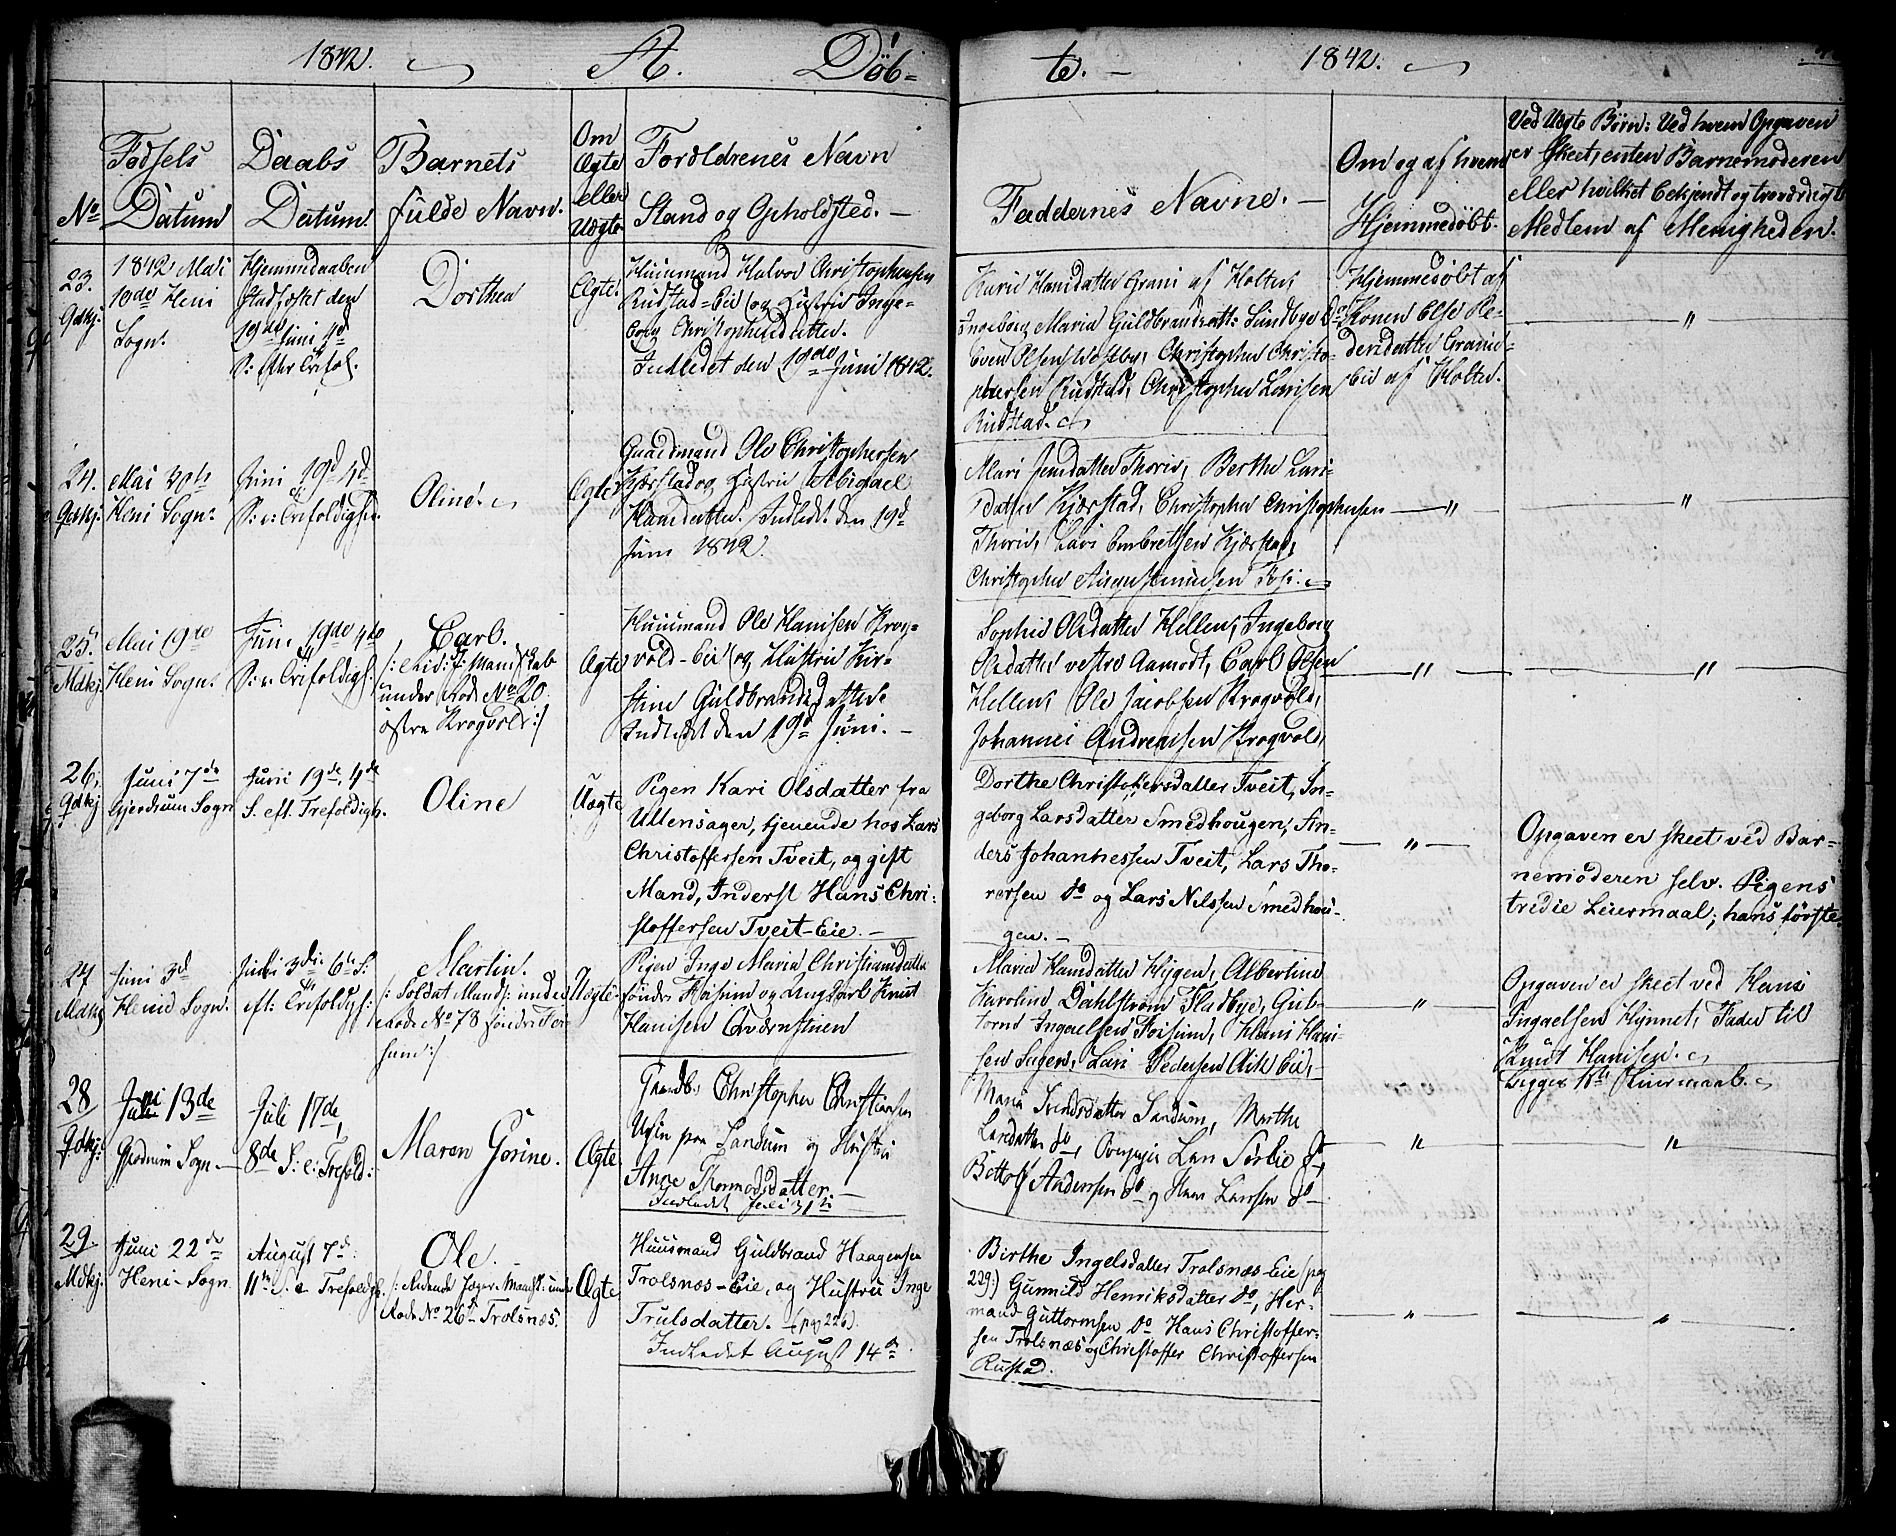 1842.
A.
Döb=
te. -
1842.
No
Fødsels
Datum
Daabs
Datum.
Barnets
fulde Navn.
Om
Ægte
eller
Uægte
Forældrenes Navn
Stand og Opholdsted. -
Faddernes Navne. -
Om og af hvem
Hjemmedöbt.
Ved Uægte Børn: Ved hvem Opgaven
er skeet, enten Barnemoderen
eller hvilket bekjendt og troværdigt
Medlem af Menigheden.
23.
Gdkj.
1842 Mai
10de Heni
Sogn.
Hjemmedaaben
Stadfæstet den
19de Juni 4d
S: efter Trefol.
Dorthea
Ægte.
Huusmand Halvor Christophersen
Rudstad=Eie og Hustrue Inge-
borg Christophersdatter.
Indledet den 19de Juni 1842.
Karie Hansdatter Grani af Holter,
Ingeborg Maria Guldbrandsdtt: Sundbye
Even Olsen Westby, Christopher Christo-
phersen Rudstad, Christopher Larsen
Rudstad.
Hjemmedöbt af
Konen Else Pe-
dersdatter Granie-
Eie af Holter.
"
24.
Gdkj.
Mai 30te
Heni Sogn.
Juni 19d 4d
S: e: Trefoldighe.
Oline.
Ægte
Gaardmand Ole Christophersen
Kjærstad og Hustrue Abigael
Hansdatter. Indledt den 19d
Juni 1842.
Mari Jensdatter Thorie, Berthe Lars-
datter Kjærstad, Christopher Christophersen
Thorie, Lars Embretsen Kjærstad,
Christopher Augustinussen
"
"
25.
Mdkj.
Mai 19de
Heni Sogn.
Juni 19de 4de
S: e: Trefoldigh:
Carl.
Mandskab
under Rode No 20.
östre Krogvold:/
Ægte
Huusmand Ole Hansen Krog-
vold-Eie og Hustrue Kir-
stine Guldbrandsdatter.
Indledet den 19d Juni. -
Sophie Olsdatter Hellen, Ingeborg
Olsdatter vestre Aamodt, Carl Olsen
Hellen, Ole Jacobsen Krogvold,
Johannes Andreassen Krogvold,
"
"
26.
Gdkj
Juni 7de
Gjerdrum Sogn
Juni 19de, 4de
S. eft. Trefoldigh.
Oline
Uægte
Pigen Kari Olsdatter fra
Ullensager, tjenende hos Lars
Christoffersen Tveit, og gift
Mand, Inderst Hans Chri-
stoffersen Tveit-Eie. -
Dorthe Christophersdatter Tveit, In-
geborg Larsdatter Smedhougen, An-
ders Johannessen Tveit, Lars Tho-
rersen do og Lars Nilssen Smedhou-
gen. -
"
Opgaven er skeet ved Bar-
nemoderen selv. Pigens
tredie Leiermaal; hans første.
27
Mdkj
Juni 3d
Henie Sogn.
Juli 3die 6te S:
eft: Trefoldigh:
Martin.
/: Soldat Mands: under
Rode No 78 søndre Foi-
sum:/
Uægte
Pigen Inge Maria Christiansdatter
søndre Foisum og Ungkarl Knut
Hansen
Maria Hansdatter Hygen, Albertine
Karoline Dahlstrøm Fladbye, Gut-
torm Ingaelsen Foisum, Hans Han-
sen Lars Pedersen Eie,
"
Opgaven er skeet ved Hans
Ingaelsen Hynnet, Fader til
Knut Hansen.
Begges 1te Leiermaal.
28
Gdkj:
Juni 13de
Gjerdrum Sogn
Juli 17de,
8de S: e: Trefold:
Maren Gorine.
Ægte
Gaardb. Christopher Christiansen
paa Sandum og Hustru
Anne Thormodsdatter. -
Indledet Juli 31te
Maria Svendsdatter Sandum, Marthe
Larsdatter do, Lars Sørlie do,
Bottolf Anderssen do og Hans Larssen do
"
"
29.
Mdkj:
Juni 22de
Heni-Sogn
August 7d.
11te S. e. Trefoldigh.
Ole.
/: Ridende Jæger-Mandsk: under
Rode No 26 Trolsnæs.
Ægte
Huusmand Guldbrand Haagensen
Trolsnæs-Eie, og Hustru Inge
Trulsdatter. - (pag 226).
Indledet August 14de
Birthe Ingelsdatter Trolsnæs-Eie (pag
229:) Gunnild Henriksdatter do, Her-
mand Guttormsen do Hans Christoffer-
sen Trolsnæs og Christoffer Christoffersen
Rustad.
"
"